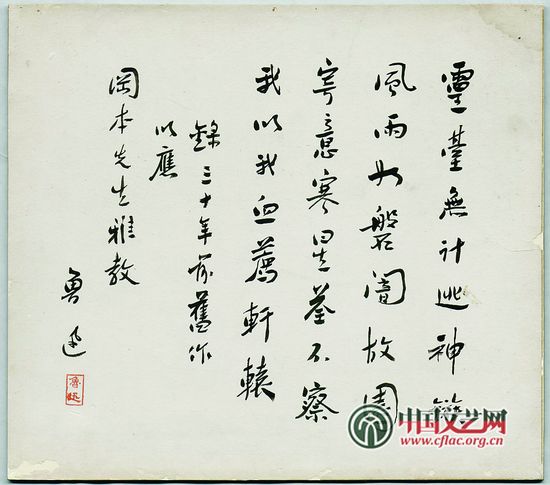 靈臺無計逃神鏃
風雨如磐闇故園
寄意寒星荃不察
我以我血薦軒轅
錄三十年前舊作
以應
岡本先生雅教
魯迅
魯迅
中国文艺网
www.cflac.org.cn